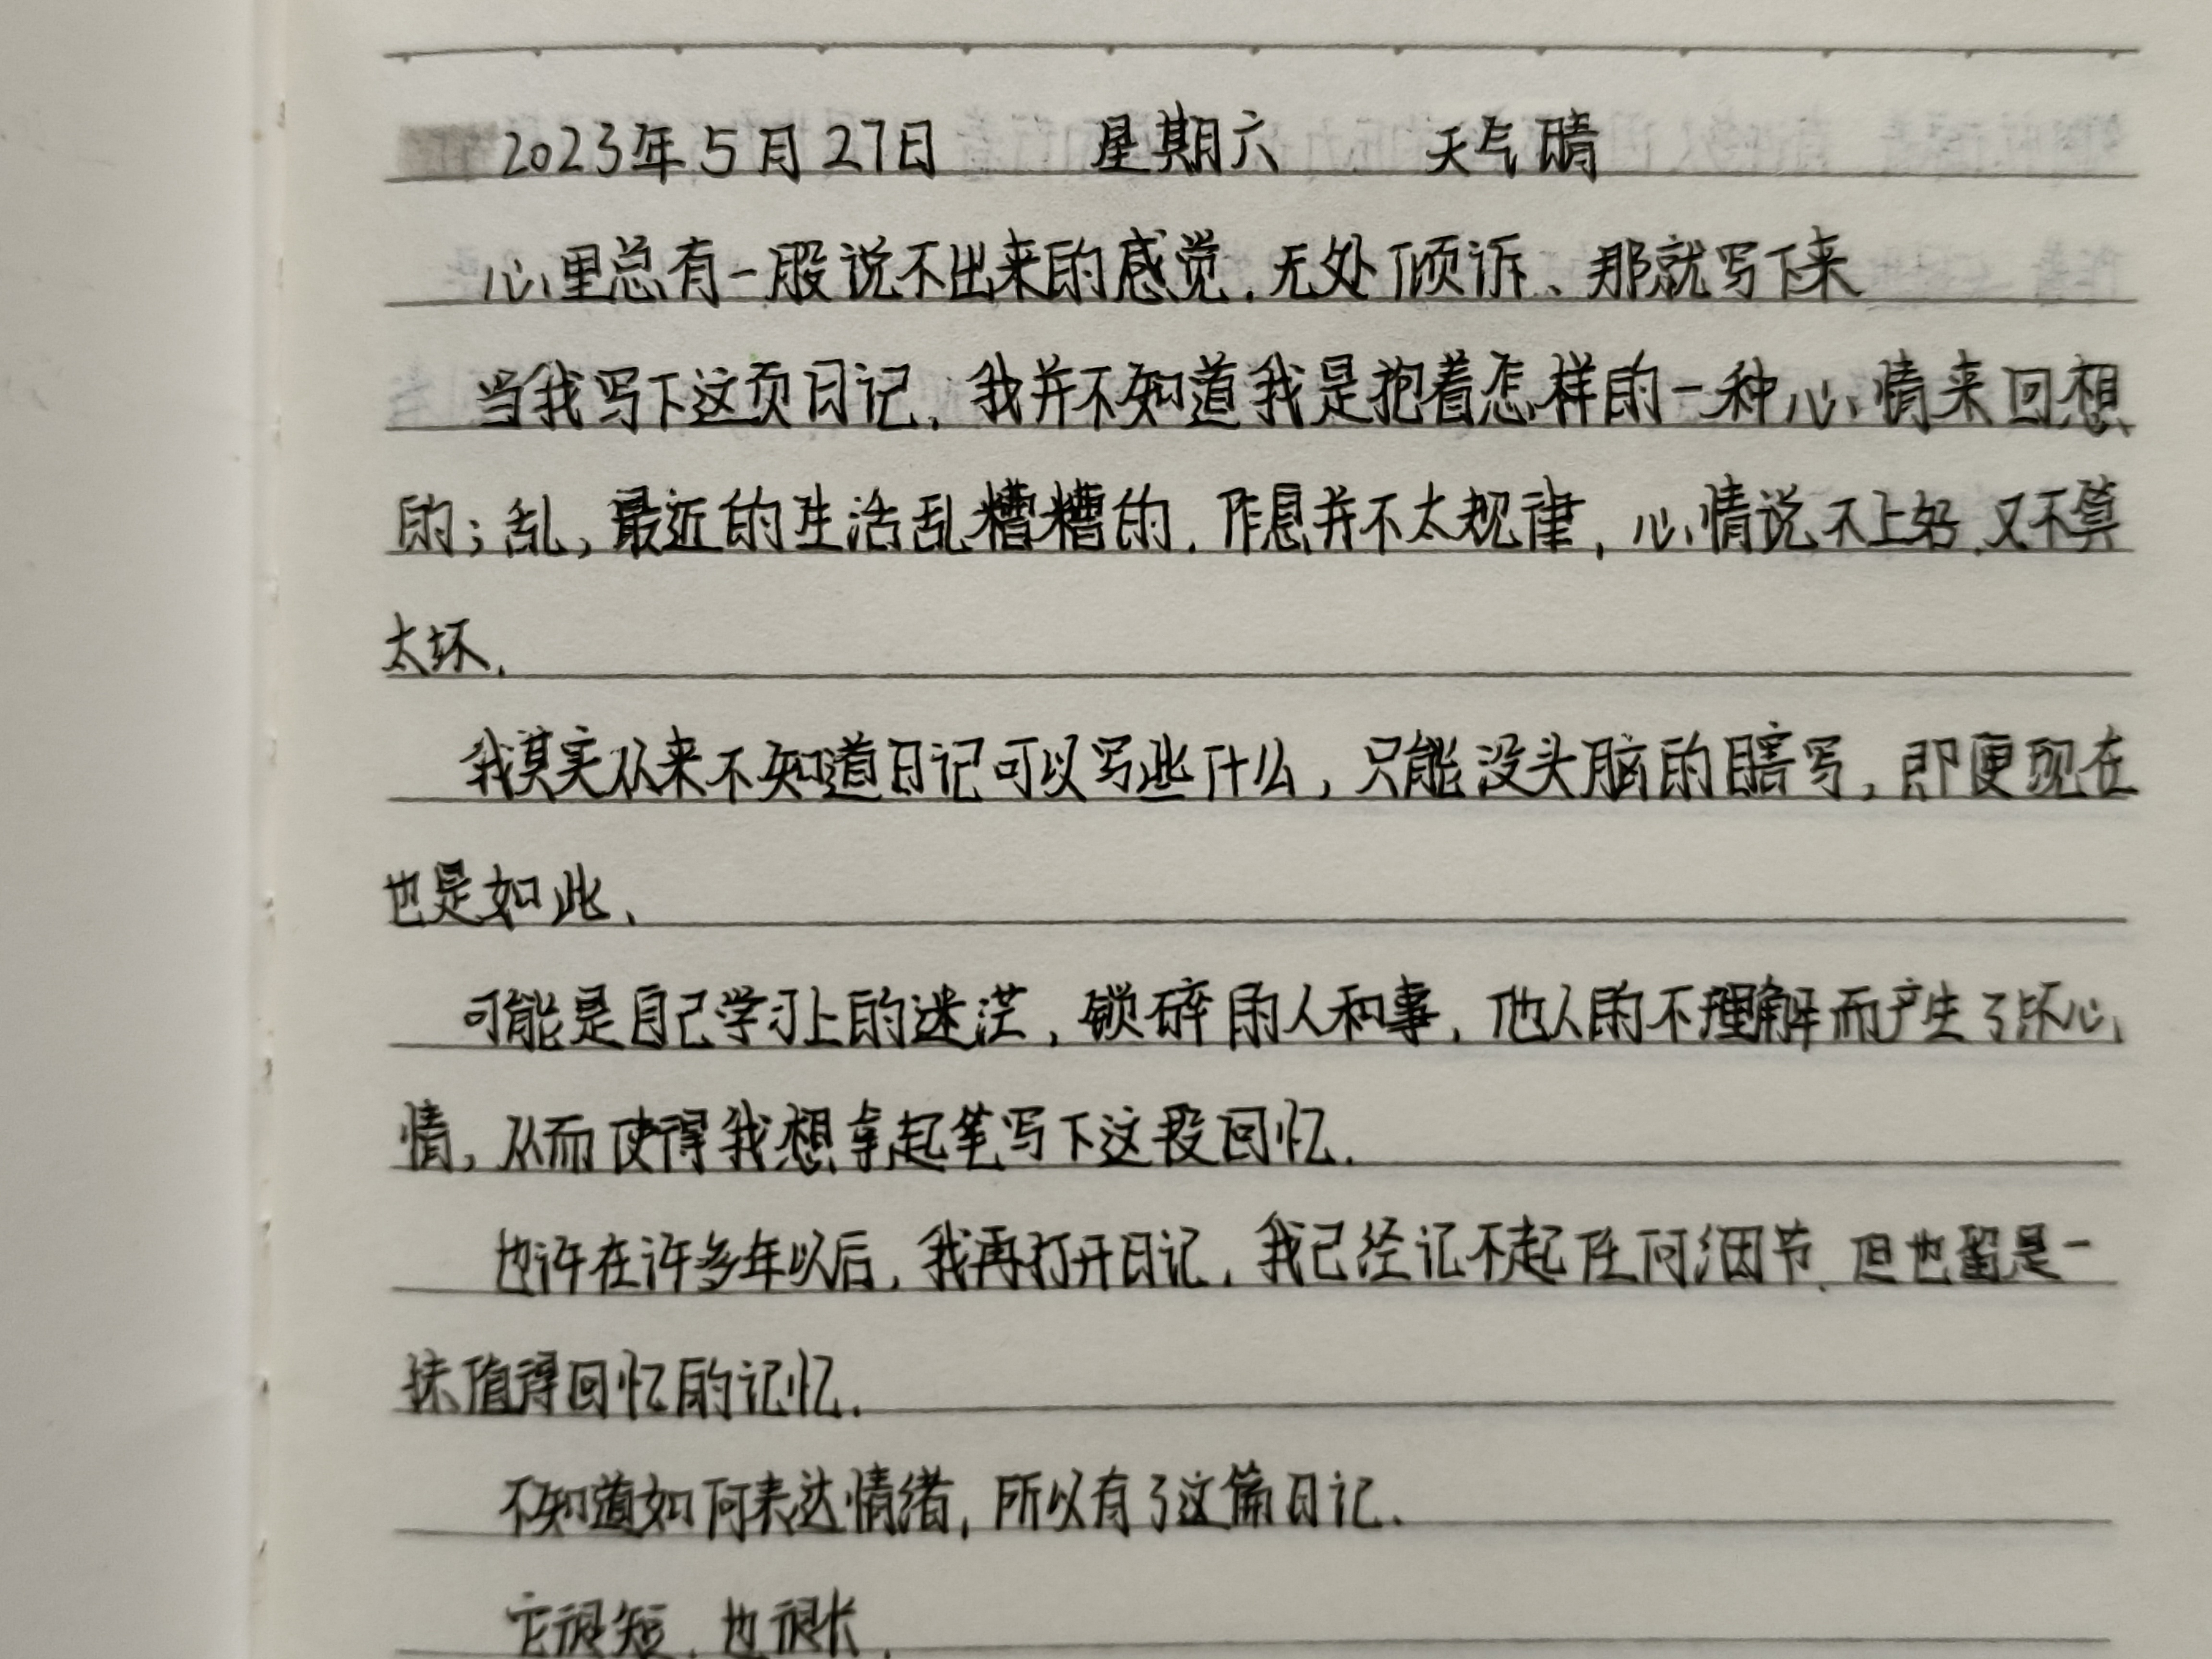 2023年5月27日 星期六 天气晴
心里总有一股说不出来的感觉.无处倾诉、那就写下来
当我写下这页日记.我并不知道我是抱着怎样的一种心情来回想
的;乱,最近的生活乱糟糟的.作息并不太规律,心情说不上好.又不算
太坏.
我其实从来不知道日记可以写些什么,只能没头脑的瞎写,即便现在
也是如此、
可能是自己学习上的迷茫,锁碎的人和事,他人的不理解而产生了坏心
情,从而使得我想拿起笔写下这段回忆.
也许在许多年以后,我再打开日记,我已经记不起任何细节.但也留是一
抹值得回忆的记忆.
不知道如何表达情绪,所以有了这篇日记.
它很短.也很长.